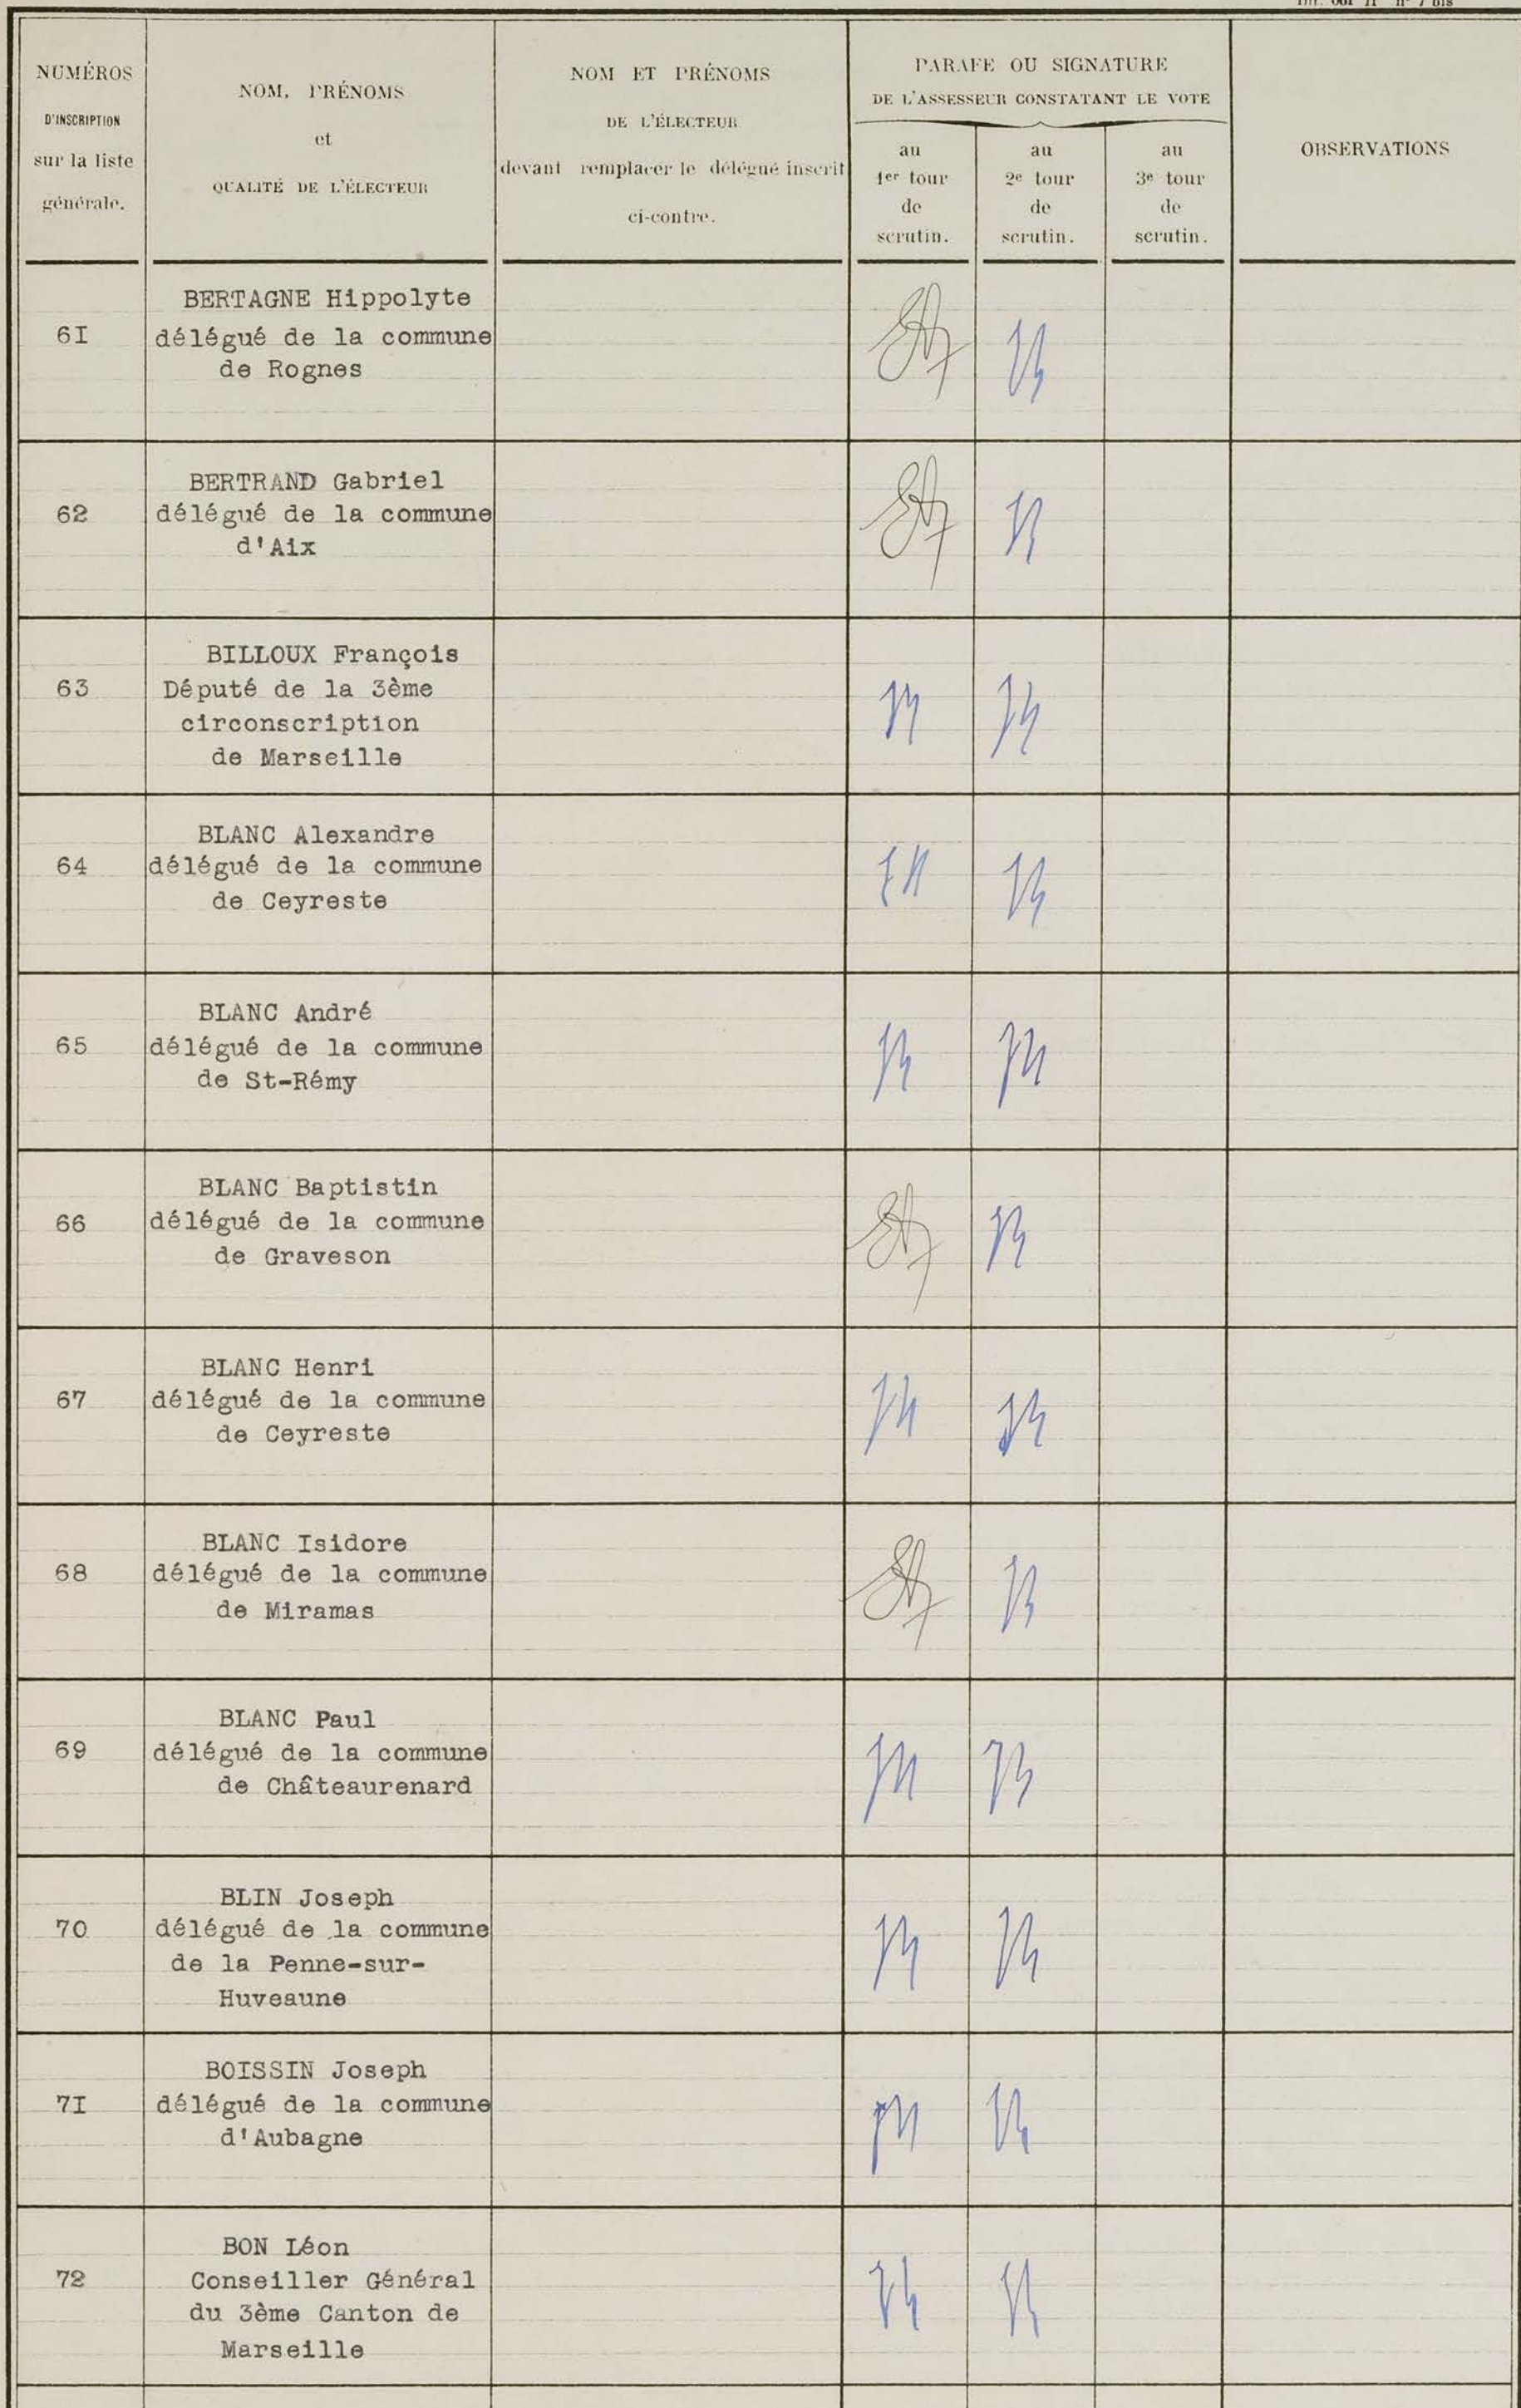 NUMÉROS
D'INSCRIPTION
sur la liste
générale.
NOM, PRÉNOMS
et
QUALITÉ DE L'ÉLECTEUR
NOM ET PRÉNOMS
DE L'ÉLECTEUR
devant remplacer le délégué inscrit
ci-contre.
PARAFE OU SIGNATURE
DE L'ASSESSEUR CONSTATANT LE VOTE
au
1er tour
de
scrutin.
au
2e tour
de
scrutin.
au
3e tour
de
scrutin.
OBSERVATIONS
6I
BERTAGNE Hippolyte
délégué de la commune
de Rognes
62
BERTRAND Gabriel
délégué de la commune
d'Aix
63
BILLOUX François
Député de la 3ème
circonscription
de Marseille
64
BLANC Alexandre
délégué de la commune
de Ceyreste
65
BLANC André
délégué de la commune
de St-Rémy
66
BLANC Baptistin
délégué de la commune
de Graveson
67
BLANC Henri
délégué de la commune
de Ceyreste
68
BLANC Isidore
délégué de la commune
de Miramas
69
BLANC Paul
délégué de la commune
de Châteaurenard
70
BLIN Joseph
délégué de la commune
de la Penne-sur-
Huveaune
7I
BOISSIN Joseph
délégué de la commune
d'Aubagne
72
BON Léon
Conseiller Général
du 3ème Canton de
Marseille